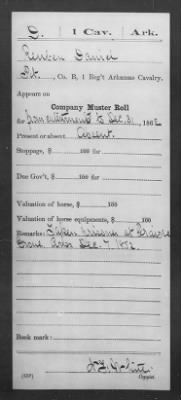 D. | 1 Cav. | Ark.
Reuben Daniel
Pvt., Co. B, 1 Reg't Arkansas Cavalry.
Appears on
Company Muster Roll
for from enrollment to Dec. 31, 1862
Present or absent: Absent
Stoppage, $ 100 for
Due Gov't, $ 100 for
Valuation of horse, $ 100
Valuation of horse equipments, $ 100
Remarks: Taken prisoner at Prairie
Grove Ark. Dec. 7. 1862.
Book mark:
Copyist.